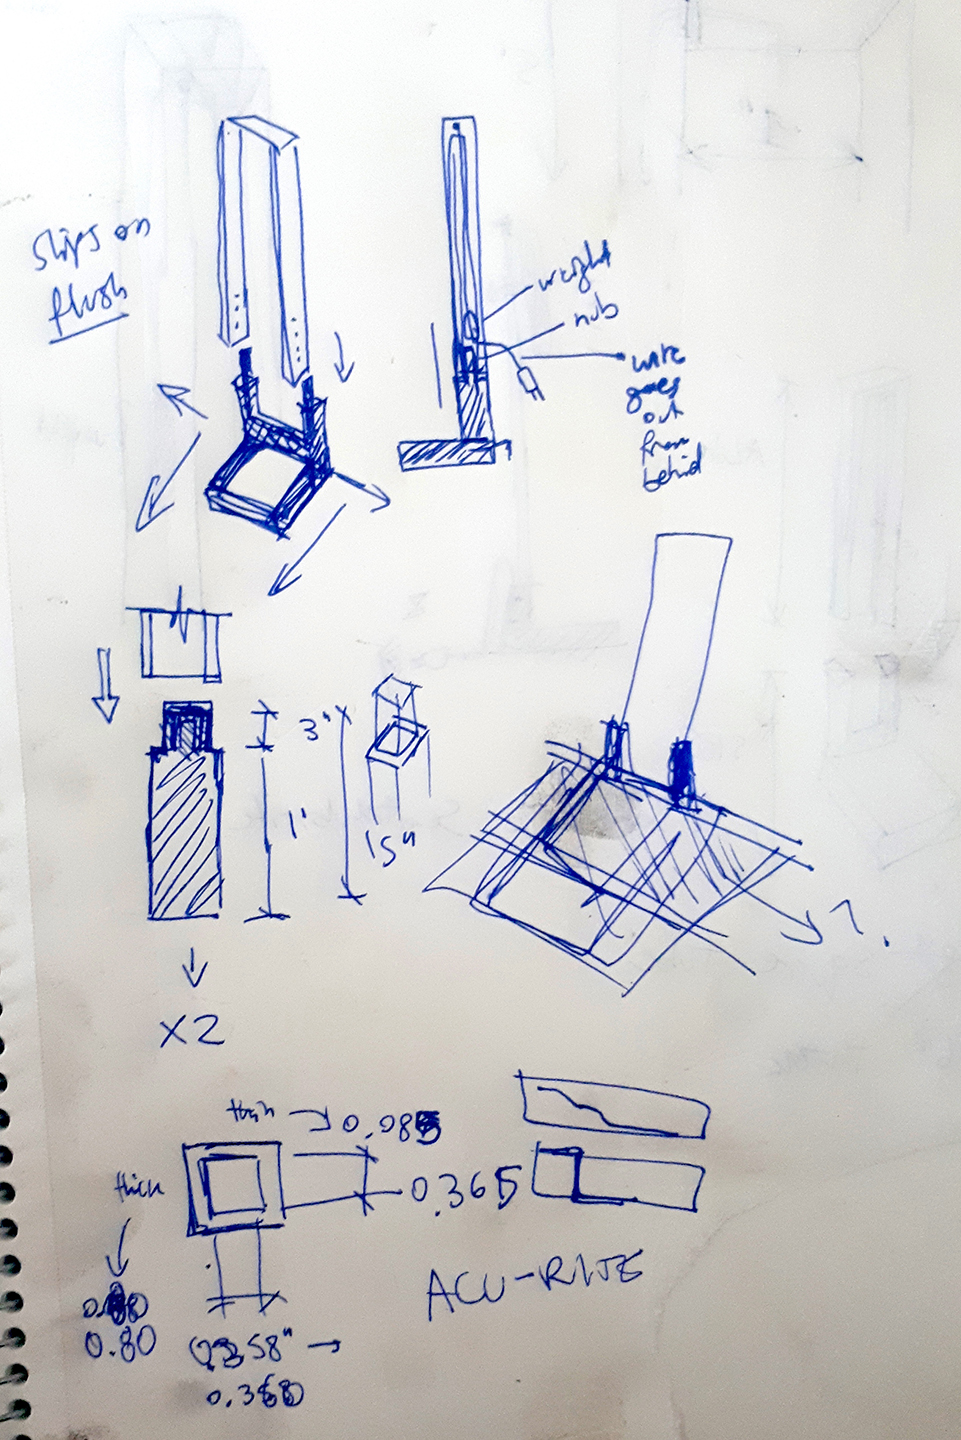 Slips on
flush
weight
nub
wire
goes
out
from
behind
3"
1'
15"
?.
X2
thin
0.085
thick
0.365
0.80
ACU-RITE